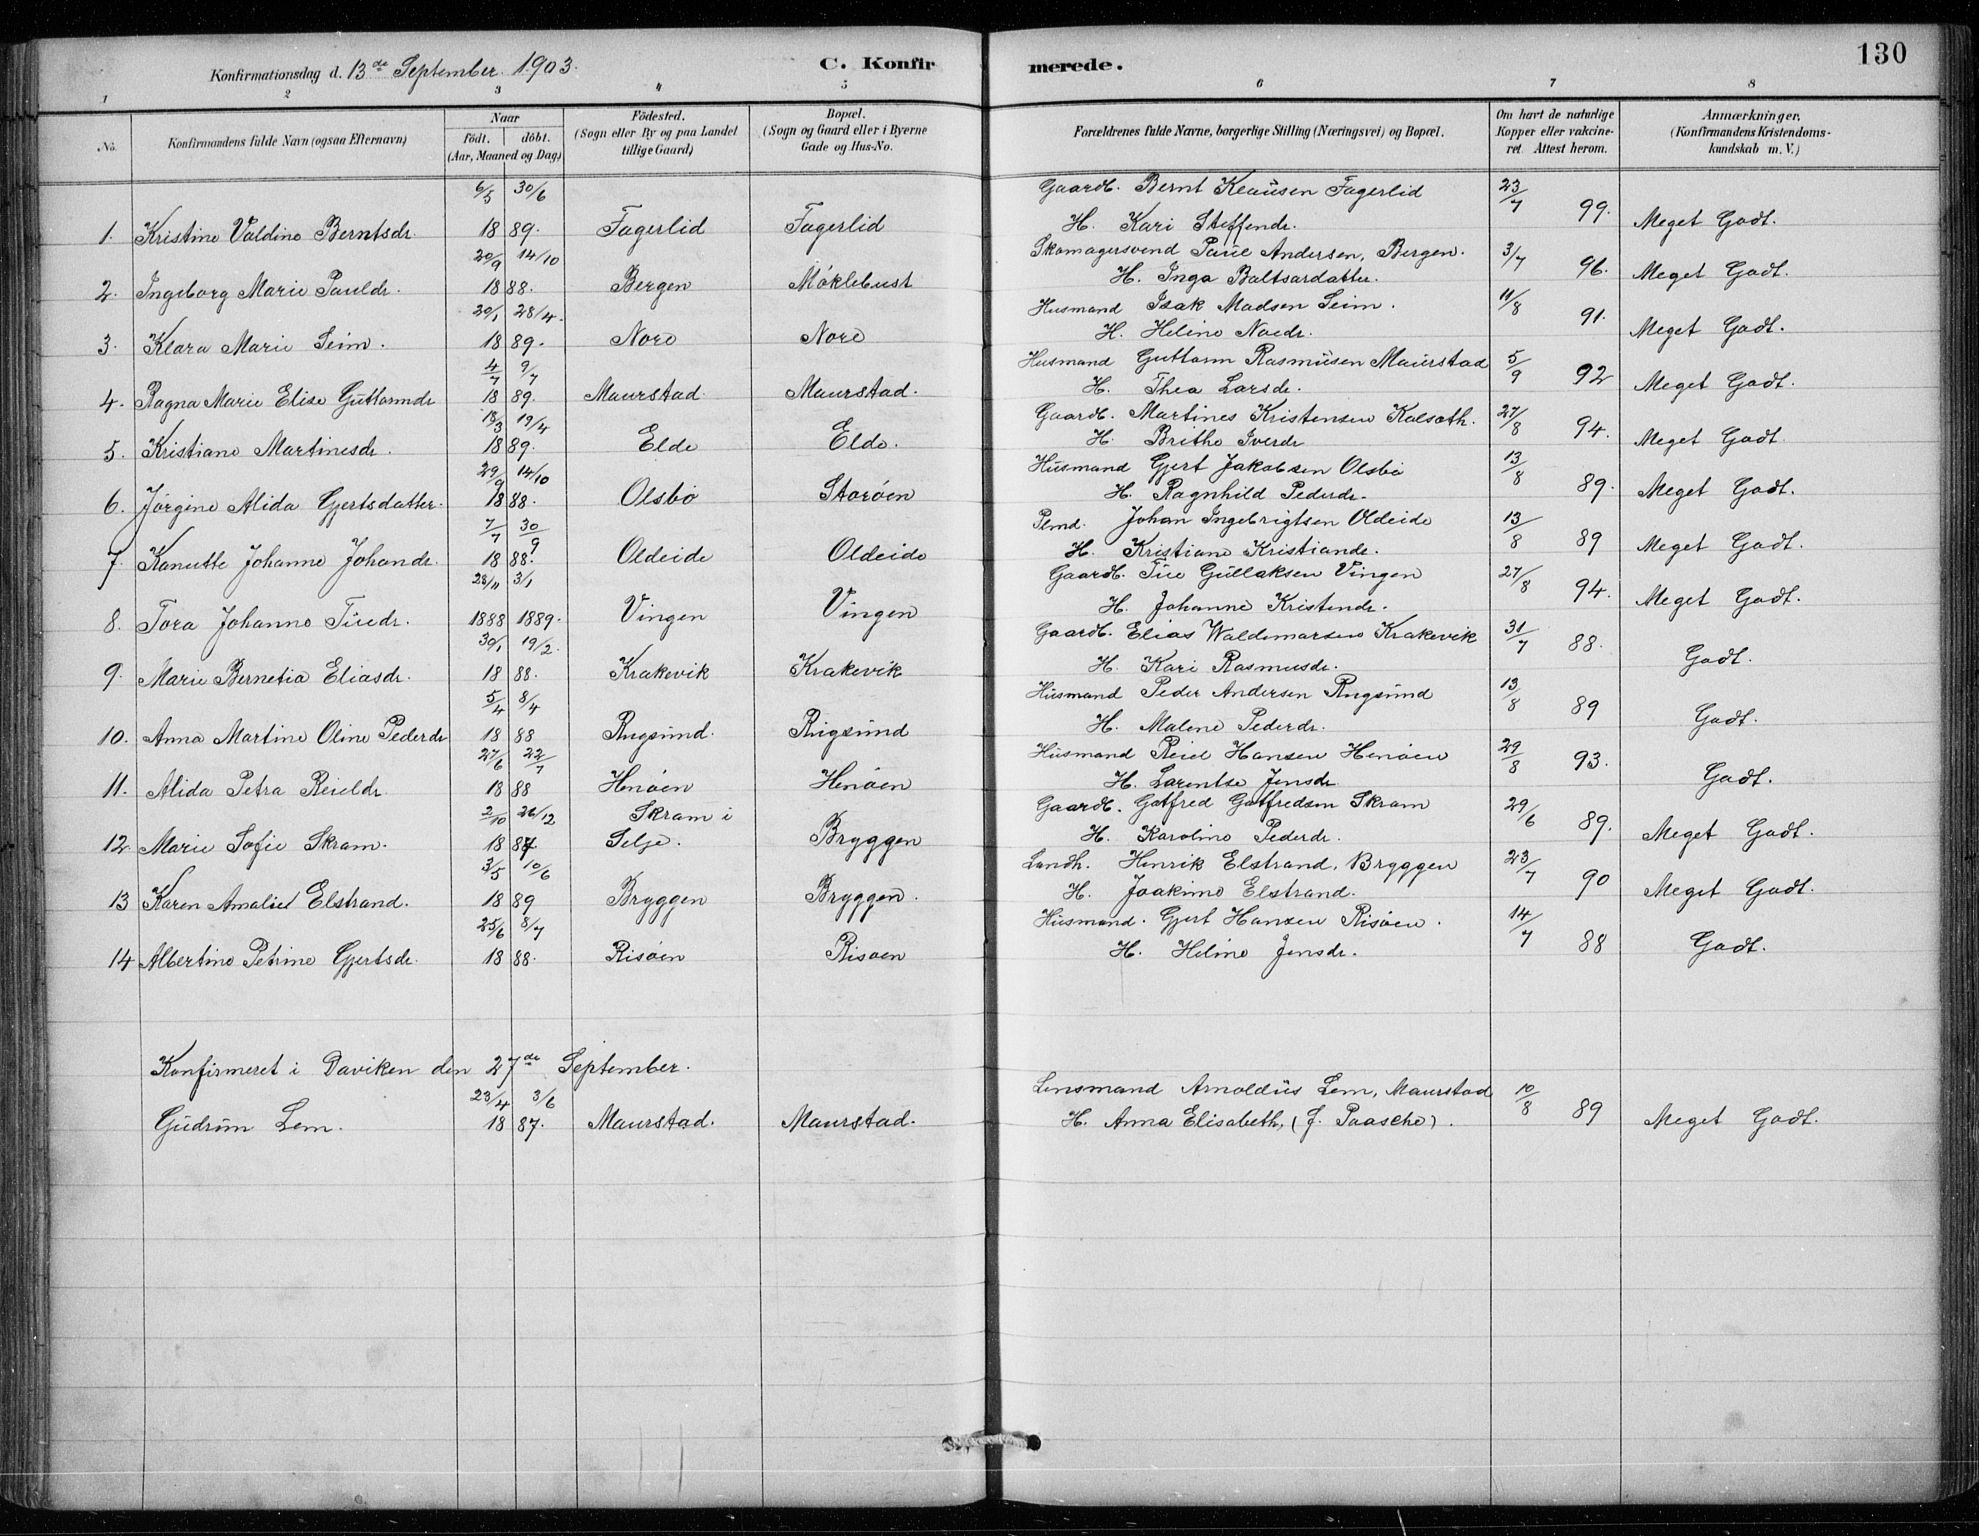 130
Konfirmationsdag d. 13de September 1903. C. Konfirmerede.
1 2 3 4 5 6 7 8
No. Konfirmandens fulde Navn (ogsaa Efternavn) Naar födt. döbt. (Aar, Maaned og Dag) Födested. (Sogn eller By og paa Landet tillige Gaard) Bopæl. (Sogn og Gaard eller i Byerne Gade og Hus-No. Forældrenes fulde Navne, borgerlige Stilling (Næringsvei) og Bopæl. Om havt de naturlige Kopper eller vakcineret. Attest herom. Anmærkninger, (Konfirmandens Kristendomskundskab m. V.)
6/5 30/6 Gaardb. Bernt Klausen Fagerlid 23/7
1. Kristine Valdine Berntsdr. 1889. Fagerlid Fagerlid H. Kari Steffendr. 99. Meget Godt.
20/9 14/10 Skomagersvend Paul Andersen, Bergen. 3/7
2. Ingeborg Marie Pauldr. 1888. Bergen Møklebust H. Inga Baltsardatter. 96. Meget Godt.
20/1 28/4. Husmand Isak Madsen Seim. 11/8
3. Klara Marie Seim. 1889. Nore Nore H. Heline Noedr. 91. Meget Godt.
4/7 9/7 Husmand Guttorm Rasmusen Maurstad 5/9
4. Ragna Marie Elise Guttormdr 1889. Maurstad Maurstad. H. Thea Larsdr. 92 Meget Godt.
13/3 19/4 Gaardb. Martines Kristensen Kalsæth. 27/8
5. Kristiane Martinesdr. 1889. Elde Elde. H. Brithe Iverdr 94. Meget Godt.
29/9 14/10 Husmand Gjert Jakobsen Olsbø 13/8
6. Jørgine Alida Gjertsdatter. 1888. Olsbø Storøen H. Ragnhild Pederdr. 89. Meget Godt.
7/7 30/9 Plmd. Johan Ingebrigtsen Oldeide 13/8
7. Kanutte Johanne Johandr. 1888. Oldeide Oldeide H. Kristiane Kristiandr. 89 Meget Godt.
28/11 3/1 Gaardb. Tue Gullaksen Vingen 27/8
8. Tora Johanne Tuedr. 1888 1889. Vingen Vingen H. Johanne Kristendr. 94. Meget Godt.
30/1 19/2. Gaardb. Elias Waldemarsen Krakevik 31/7
9. Marie Bernetia Eliasdr. 1888. Krakevik Krakevik H. Kari Rasmusdr. 88. Godt.
5/4 8/4 Husmand Peder Andersen Rugsund 13/8
10. Anna Martine Oline Pederdr 1888 Rugsund. Rugsund H. Malene Pederdr. 89 Godt.
27/6 22/7 Husmand Reiel Hansen Henøen 29/8
11. Alida Petra Reieldr 1888 Henøen Henøen H. Larentse Jensdr 93. Godt.
2/10 26/12 Skram i Gaardb. Gotfred Gotfredsen Skram 29/6
12 Marie Sofie Skram. 1887 Selje. Bryggen H. Karoline Pederdr. 89. Meget Godt.
3/5 10/6 Landh. Henrik Elstrand, Bryggen 23/7
13 Karen Amalie Elstrand. 1889 Bryggen Bryggen. H. Joakime Elstrand. 90 Meget Godt.
25/6 8/7 Husmand. Gjert Hansen Risøen. 14/7
14 Albertine Petrine Gjertsdr. 1888. Risøen Risøen H. Heline Jensdr. 88 Godt.
Konfirmeret i Daviken den 27de September.
23/4 3/6 Lensmand Arnoldus Lem, Maurstad 10/8
Gudrun Lem. 1887. Maurstad. Maurstad. H. Anna Elisabeth, (f. Paasche). 89 Meget Godt.